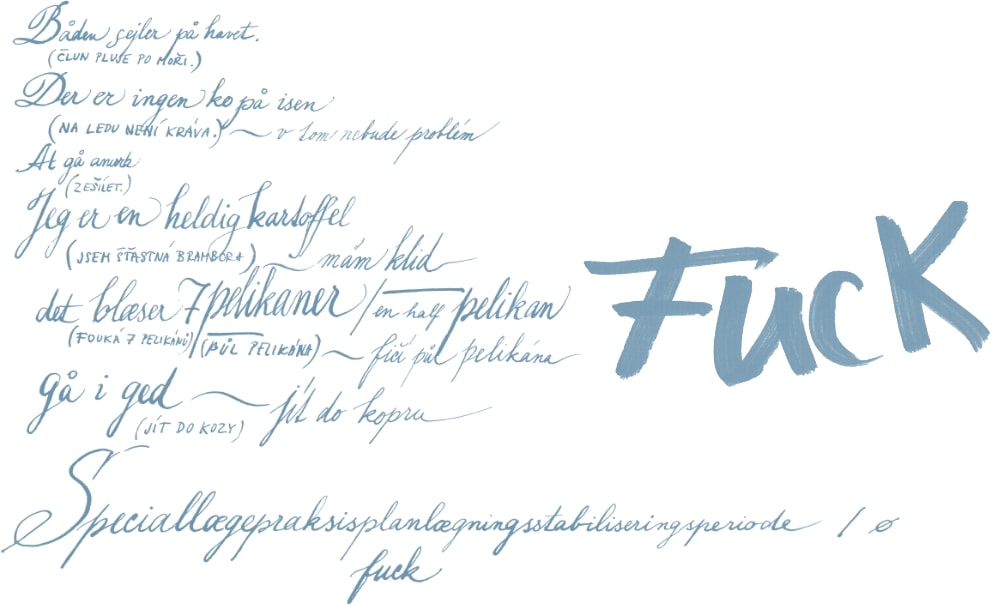 Båden sejler på havet.
(ČLUN PLUJE PO MOŘI.)
Der er ingen ko på isen
(NA LEDU NENÍ KRÁVA.) ~ v tom nebude problém
At gå amok
(ZEŠÍLET.)
Jeg er en heldig kartoffel
(JSEM ŠŤASTNÁ BRAMBORA) ~ mám klid
det blæser 7 pelikaner / en half pelikan
(FOUKÁ 7 PELIKÁNŮ) (PŮL PELIKÁNA) ~ fičí půl pelikána
gå i ged ~ jít do kopru
(JÍT DO KOZY)
Speciallægepraksisplanlægningsstabiliseringsperiode / ø
fuck
FucK